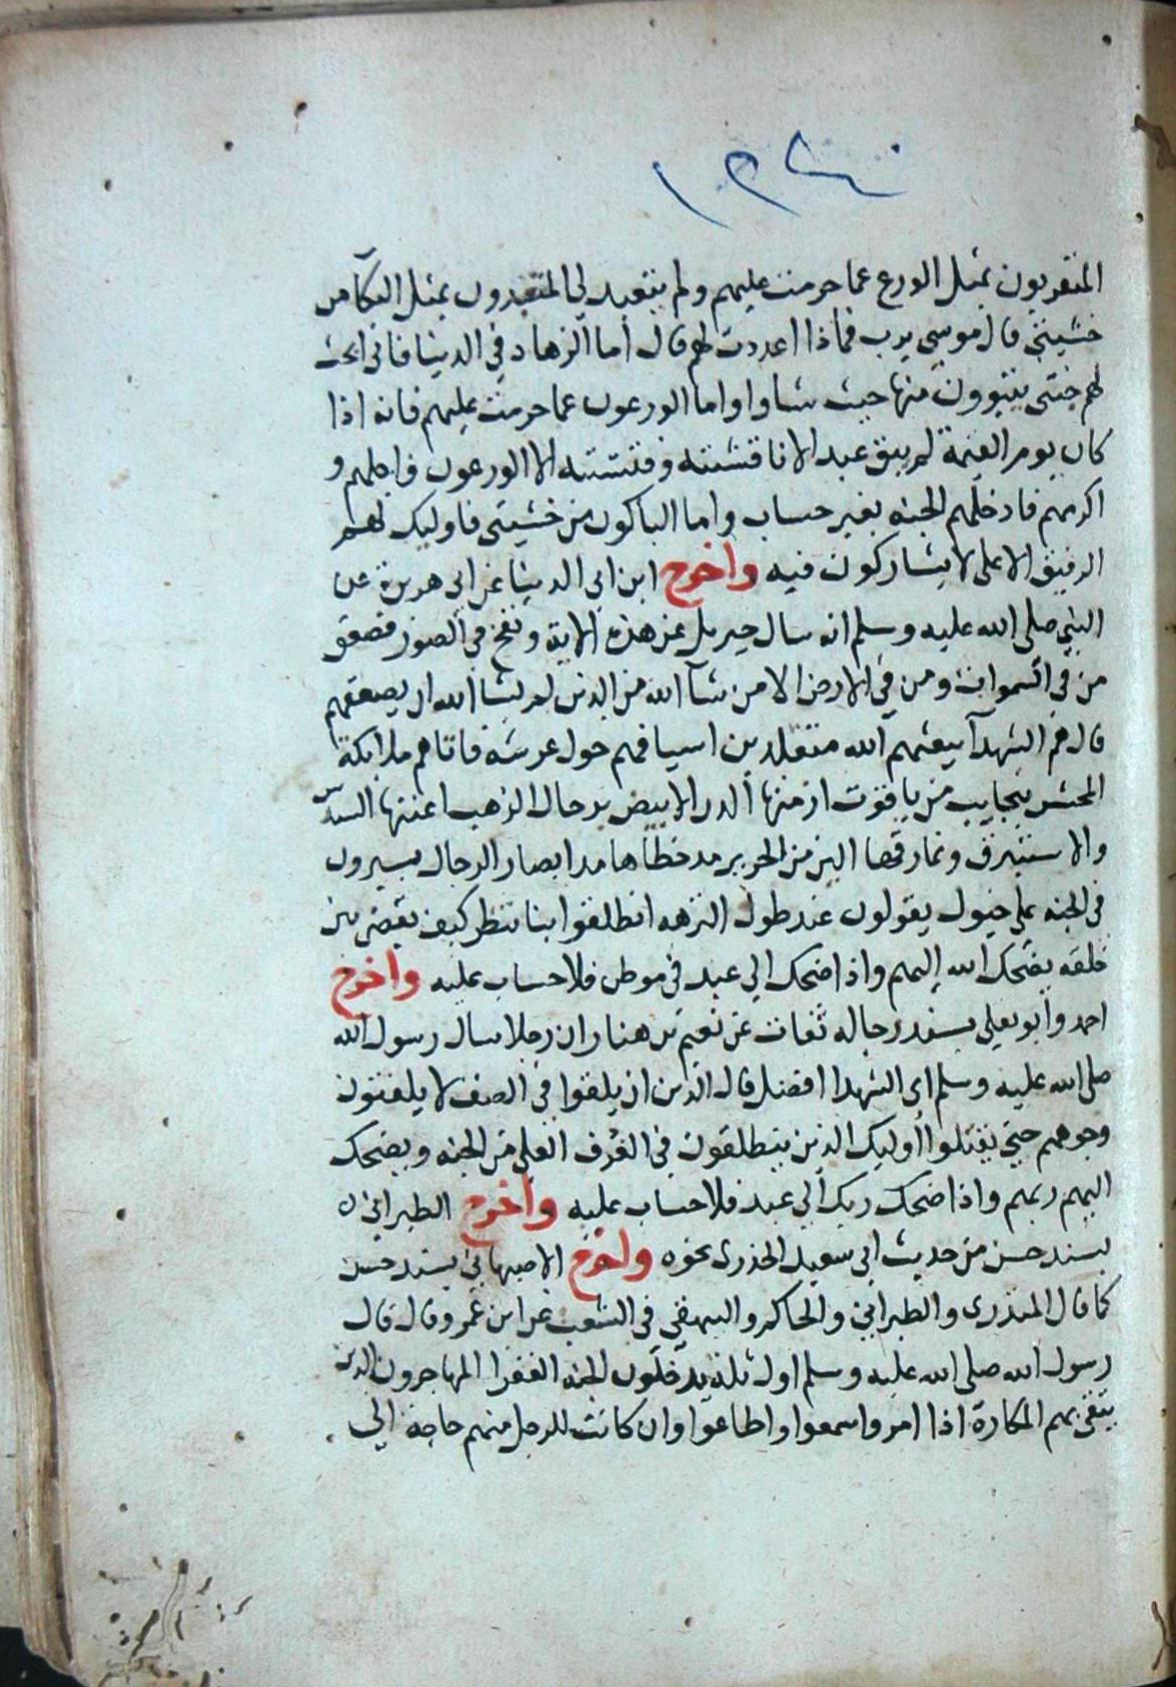 ١٢٤٠
المتقربون بمثل الورع عما حرمت عليهم ولم يتعبد لي المتعبدون بمثل البكآ من
خشيتي قال موسى يرب فماذا اعددت لهم قال أما الزهاد في الدينا فاني ابحث
لهم جنتي يتبوون منها حيث شاوا واما الورعون عما حرمت عليهم فانه اذا
كان يوم القيمة لم يبق عبد الا ناقشته وفتشته الا الورعون فاجلهم و
اكرمهم فادخلهم الجنه بغير حساب واما الباكون من خشيتي فاوليك لهم
الرفيق الاعلى لا يشاركون فيه واخرج ابن ابي الدينا عن ابي هريرة عن
النبي صلى الله عليه وسلم انه سال جبريل عن هذه الاية ونفخ في الصور فصعق
من في السموات ومن في الارض الا من شآ الله من الذين لم يشا الله ان يصعقهم
قال هم الشهدآ يبعثهم الله متقلدين اسيافهم حول عرشه فاتاهم ملايكة
المحشر بنجايب من ياقوت ازمتها الدر الابيض برحال الذهب اعنتها السندس
والاستبرق ونمارقها الين من الحرير مد خطاها مد ابصار الرجال يسيرون
في الجنه على خيول يقولون عند طول النزهه انطلقوا بنا ننظر كيف يقضى بين
خلقه يضحك الله إليهم واذا ضحك الي عبد في موطن فلا حساب عليه واخرج
احمد وأبو يعلى بسند رجاله ثقات عن نعيم بن هنار ان رجلا سال رسول الله
صلى الله عليه وسلم اى الشهدا افضل قال الذين ان يلقوا في الصف لا يلفتون
وجوههم حتى يقتلوا أوليك الذين يتطلقون في الغرف العلى من الجنه ويضحك
اليهم ربهم واذا ضحك ربك الي عبد فلا حساب عليه واخرج الطبراني
بسند حسن من حديث ابي سعيد الخذرى نحوه واخرج الاصبهاني بسند حسن
كما قال المنذرى والطبراني والحاكم والبيهقي في الشعب عن ابن عمرو قال قال
رسول الله صلى الله عليه وسلم اول ثلة يدخلون الجنه الفقرا المهاجرون الذين
يتقى بهم المكارة اذا امروا سمعوا واطاعوا وان كانت للرجل منهم حاجة الي